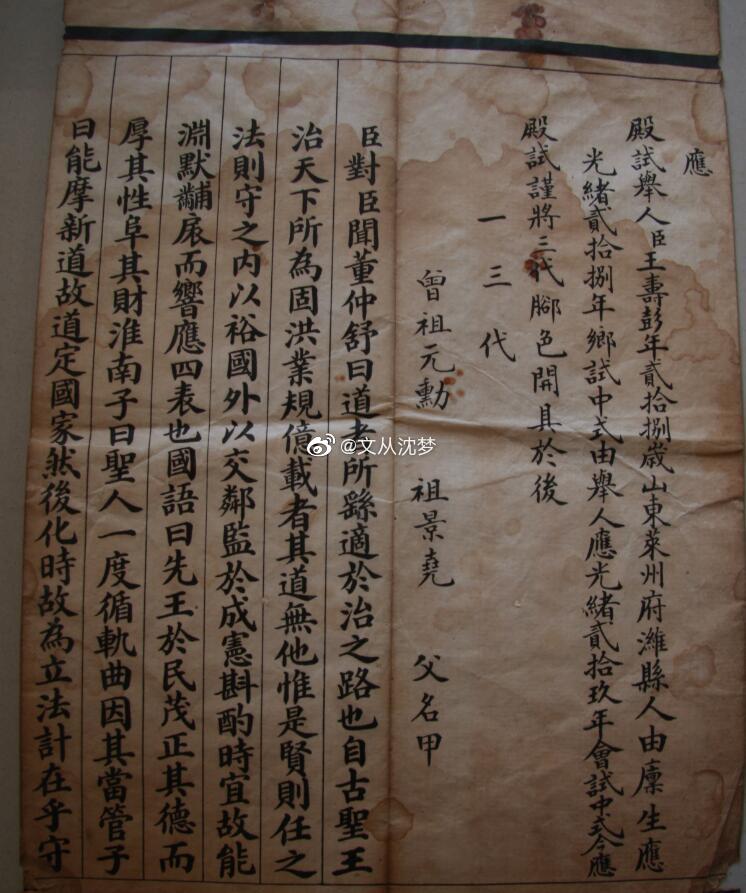 應
殿試舉人臣王壽彭年貳拾捌歲山東萊州府濰縣人由廩生應
光緒貳拾捌年鄉試中式由舉人應光緒貳拾玖年會試中式今應
殿試謹將三代腳色開具於後
一三代
曾祖元勳 祖景堯 父名甲
臣對臣聞董仲舒曰道者所繇適於治之路也自古聖王
治天下所為固洪業規億載者其道無他惟是賢則任之
法則守之內以裕國外以交鄰監於成憲斟酌時宜故能
淵默黼扆而響應四表也國語曰先王於民茂正其德而
厚其性阜其財淮南子曰聖人一度循軌曲因其當管子
曰能摩新道故道定國家然後化時故為立法計在乎守
@文从沈梦